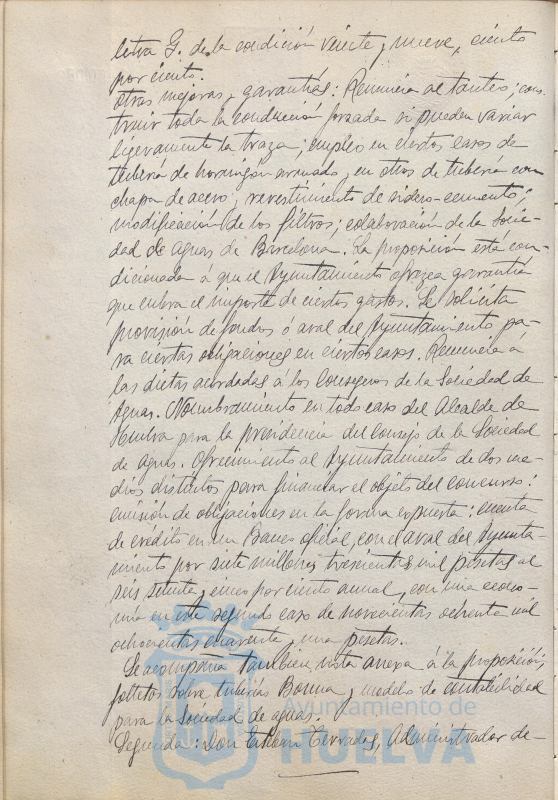 letra G. de la condición veinte y nueve, ciento
por ciento.
Otras mejoras y garantías: Renuncia al tanteo; cons
truir toda la conducción forzada si pueden variar
ligeramente la traza; empleo en ciertos casos de
tubería de hormigón armado, en otros de tubería con
chapa de acero, revestimiento de sidero-cemento;
modificación de los filtros; colaboración de la Socie-
dad de aguas de Barcelona. La proposición está con-
dicionada á que el Ayuntamiento ofrezca garantía
que cubra el importe de ciertos gastos. Se solicita
provisión de fondos ó aval del Ayuntamiento pa-
ra ciertas obligaciones en ciertos casos. Renuncia á
las dietas acordadas á los Consejeros de la Sociedad de
Aguas. Nombramiento en todo caso del Alcalde de
Huelva para la presidencia del Consejo de la Sociedad
de aguas. Ofrecimiento al Ayuntamiento de dos me-
dios distintos para financiar el objeto del concurso:
emisión de obligaciones en la forma expuesta: cuenta
de crédito en un Banco oficial, con el aval del Ayunta-
miento por siete millones trescientas mil pesetas al
seis setenta y cinco por ciento anual, con una econo-
mía en este segundo caso de novecientas ochenta mil
ochocientas cuarenta y una pesetas.
Se acompaña también nota anexa á la proposición,
folletos sobre tuberías Bonna y modelo de contabilidad
para la Sociedad de aguas.
Segunda: Don Esteban Terradas, Administrador de-
Ayuntamiento de
HUELVA